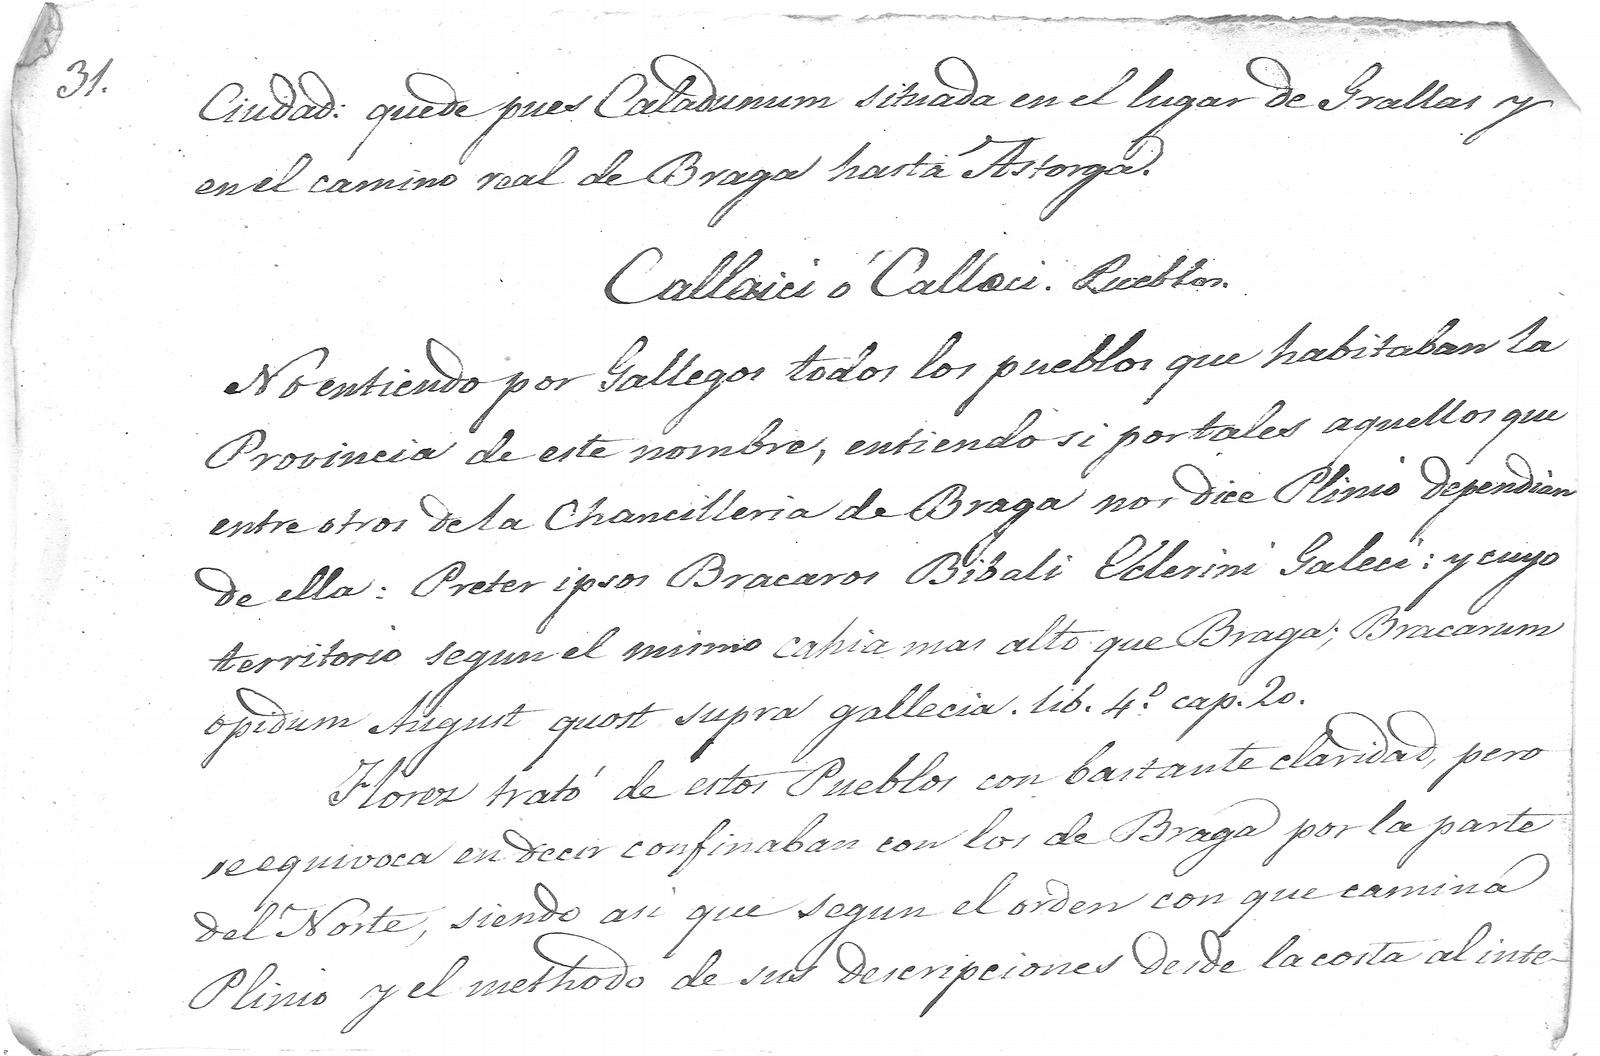 31.
Ciudad: quede pues Caladunum situada en el lugar de Grallas y
en el camino real de Braga hasta Astorga.
Callaici ó Callæci. Pueblos.
No entiendo por Gallegos todos los pueblos que habitaban la
Provincia de este nombre, entiendo si por tales aquellos que
entre otros de la Chancilleria de Braga nos dice Plinio dependian
de ella: Preter ipsos Bracaros Bibali Celerini Galeci: y cuyo
territorio segun el mismo cahia mas alto que Braga; Bracarum
opidum August quost supra gallecia. lib. 4º cap. 20.
Florez trató de estos Pueblos con bastante claridad, pero
se equivoca en decir confinaban con los de Braga por la parte
del Norte, siendo asi que segun el orden con que camina
Plinio y el methodo de sus descripciones desde la costa al inte-